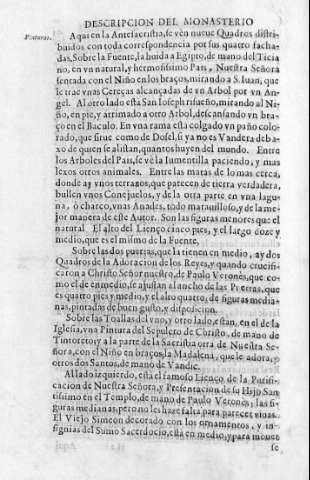 DESCRIPCION DEL MONASTERIO
Pinturas.
A qui en la Antesacristia, se vèn nueve Quadros distri-
buidos con toda correspondencia por sus quatro facha-
das, Sobre la Fuente, la huida a Egipto, de mano del Ticia
no, en vn natural, y hermosissimo Pais, Nuestra Señora
sentada con el Niño en los braços, mirando a S. Iuan, que
le trae vnas Cereças alcançadas de vn Arbol por vn An-
gel. Al otro lado està San Ioseph risueño, mirando al Ni-
ño, en pie, y arrimado a otro Arbol, descansando vn bra-
ço en el Baculo. En vna rama està colgado vn paño colo-
rado, que sirue como de Dosel, si ya no es Vandera deba-
xo de quien se alistan, quantos huyen del mundo. Entre
los Arboles del Pais, se vè la Iumentilla paciendo, y mas
lexos otros animales. Entre las matas de lo mas cerca,
donde ay vnos terrazos, que parecen de tierra verdadera,
bullen vnos Conejuelos, y de la otra parte en vna lagu-
na, ò charco, vnas Anades, todo marauilloso, y de la me-
jor manera de este Autor. Son las figuras menores que el
natural. El alto del Lienço cinco pies, y el largo doze y
medio, que es el mismo de la Fuente.
Sobre las dos puertas, que la tienen en medio, ay dos
Quadros de la Adoracion de los Reyes, y quando crucifi-
caron a Christo Señor nuestro, de Paulo Veronès, que co-
mo el de en medio, se ajustan al ancho de las Puertas, que
es quatro pies y medio, y el alto quatro, de figuras media
nas, pintadas de buen gusto, y disposicion.
Sobre las Toallas del vno, y otro lado, estan, en el de la
Iglesia, vna Pintura del Sepulcro de Christo, de mano de
Tintoreto; y a la parte de la Sacristia otra de Nuestra Se-
ñora, con el Niño en braços, la Madalena, que le adora, y
otros dos Santos, de mano de Vandic.
Al lado izquierdo, està el famoso Lienço de la Purifi-
cacion de Nuestra Señora, y Presentacion de su Hijo San
tissimo en el Templo, de mano de Paulo Veronès; las fi-
guras medianas, pero no les haze falta para parecer viuas.
El Viejo Simeon decorado con los ornamentos, y in-
signias del Sumo Sacerdocio, està en medio, y para mouer
se